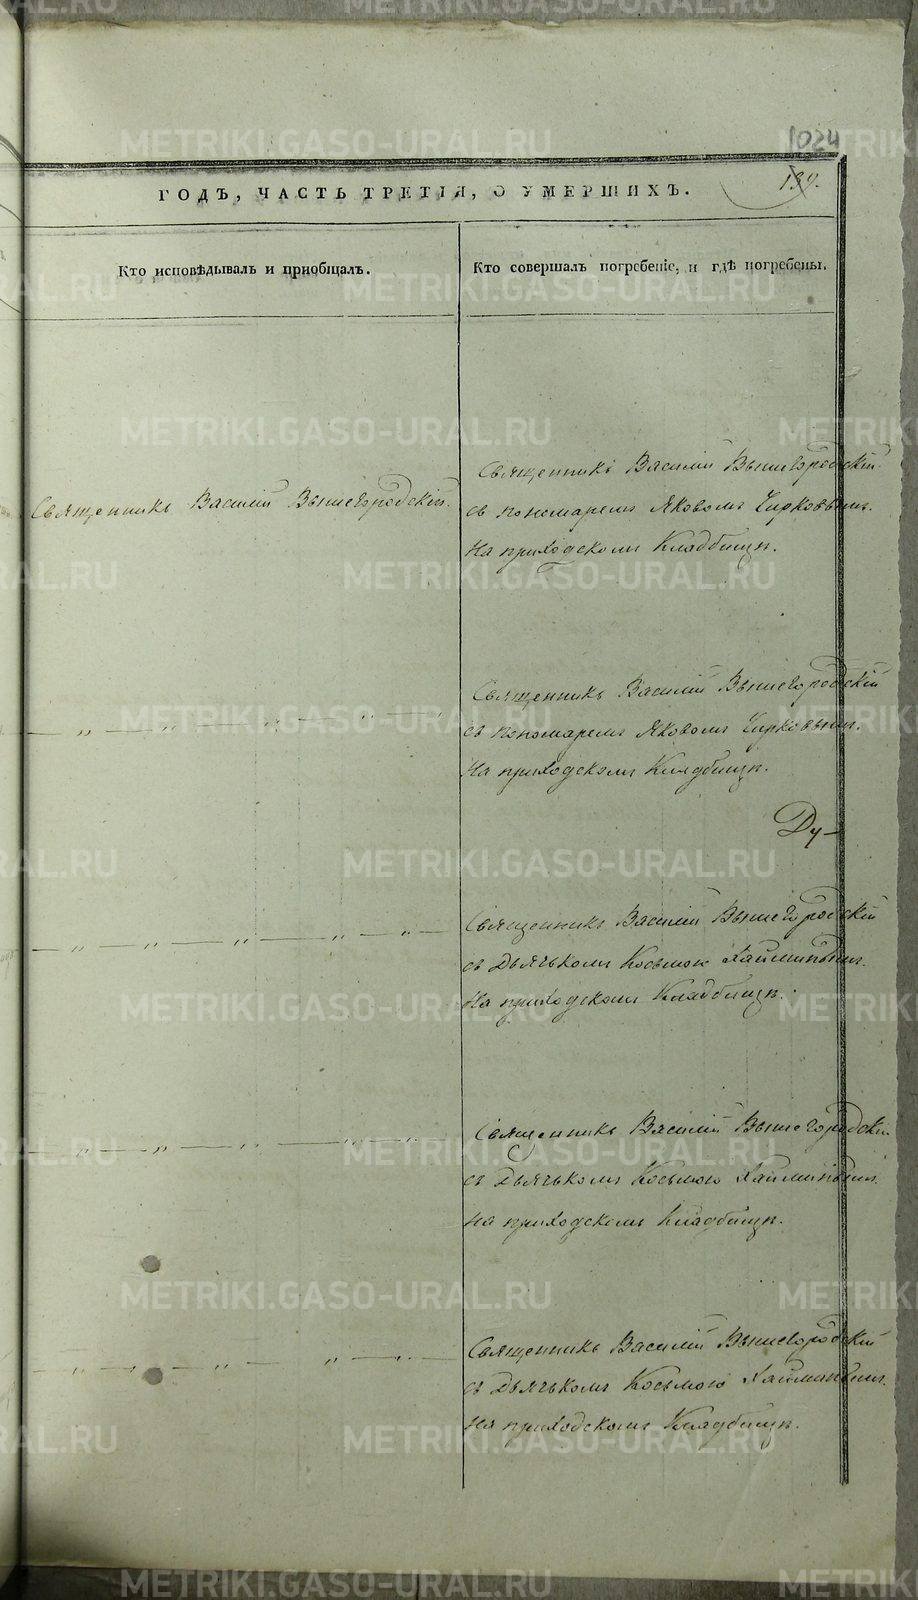 1024
139.
ГОДЪ, ЧАСТЬ ТРЕТІЯ, О УМЕРШИХЪ.
Кто исповѣдывалъ и приобщалъ.
Кто совершалъ погребеніе, и гдѣ погребены.
Священникъ Василій Вышегородскій.
Священникъ Василій Вышегородскій
съ пономаремъ Яковомъ Чирковымъ.
На приходскомъ Кладбищѣ.
— „ — „ — „ — „ —
Священникъ Василій Вышегородскій
съ пономаремъ Яковомъ Чирковымъ.
На приходскомъ Кладбищѣ.
Ду-
— „ — „ — „ — „ — „ —
Священникъ Василій Вышегородскій
съ Дьячькомъ Косьмою
На приходскомъ Кладбищѣ.
— „ — „ — „ — „ — „ —
Священникъ Василій Вышегородскій
съ Дьячькомъ Косьмою
На приходскомъ Кладбищѣ.
— „ — „ — „ — „ — „ —
Священникъ Василій Вышегородскій
съ Дьячькомъ Косьмою
На приходскомъ Кладбищѣ.
METRIKI.GASO-URAL.RU